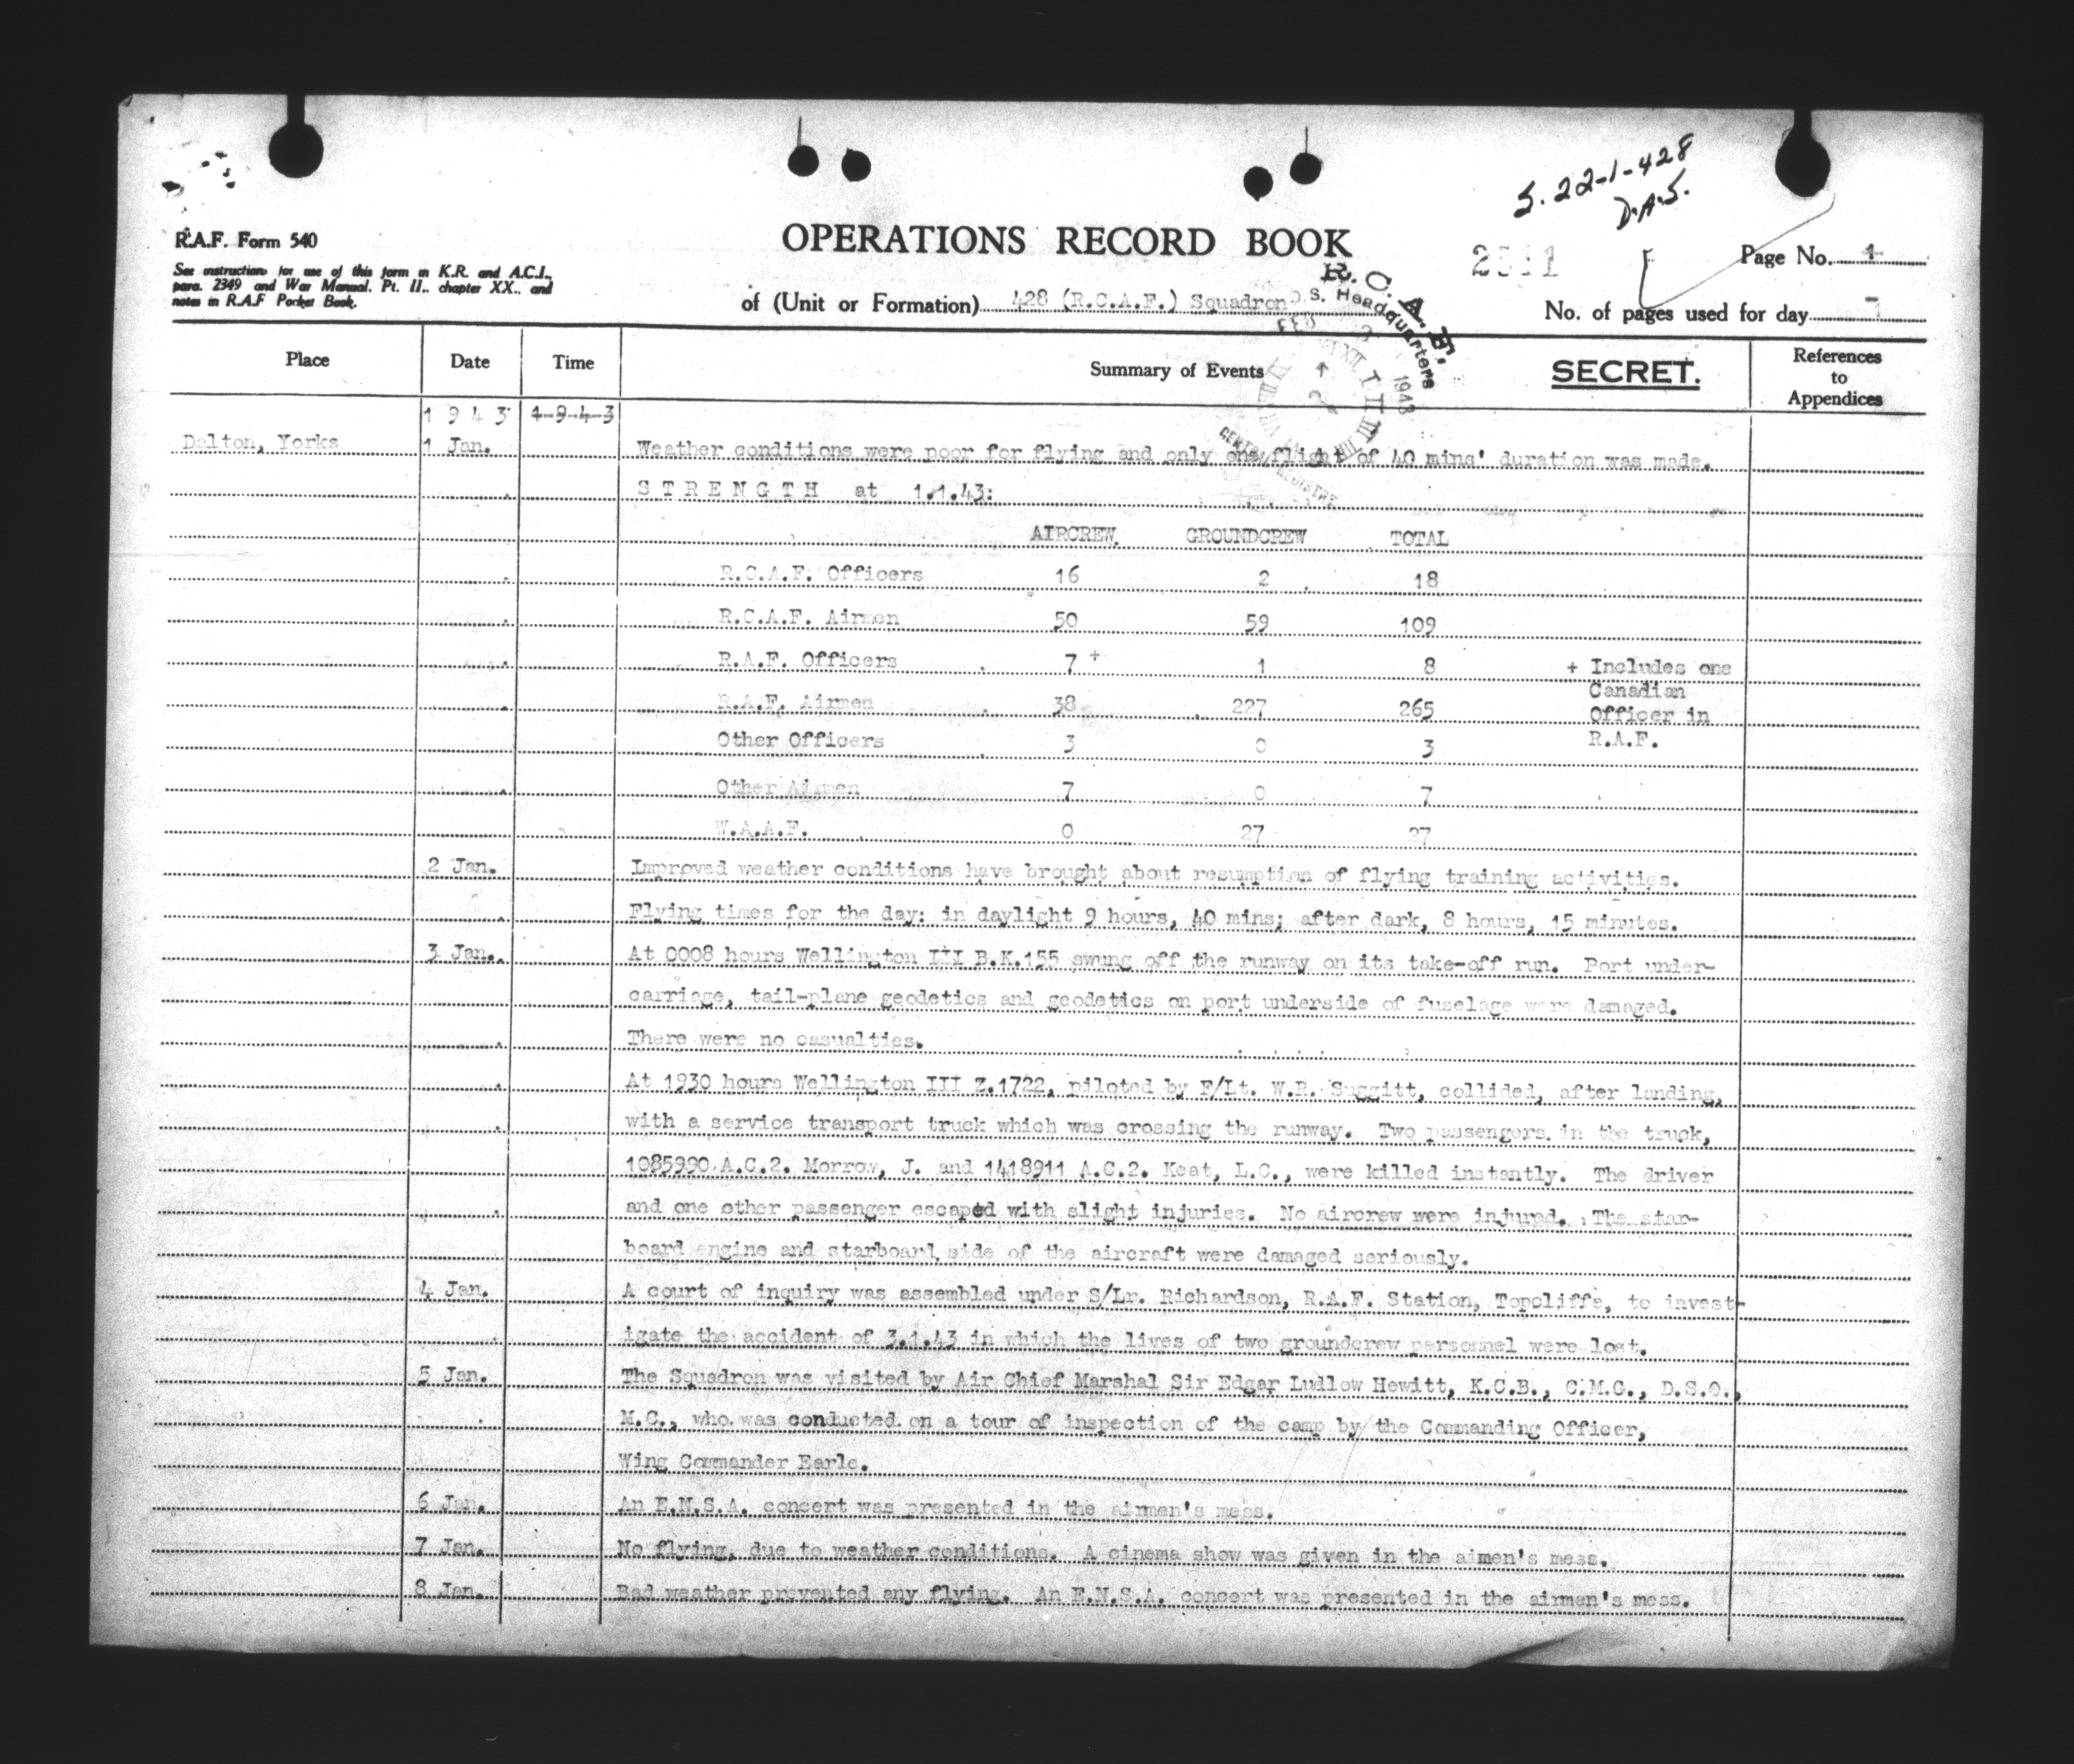 S. 22-1-428
D.A.S.
R.A.F. Form 540
See instructions for use of this form in K.R. and A.C.I.,
para. 2349 and War Manual, Pt. II., chapter XX., and
notes in R.A.F Pocket Book.
OPERATIONS RECORD BOOK
Page No. 1
of (Unit or Formation) 428 (R.C.A.F.) Squadron
No. of pages used for day
R. C. A. F.
Headquarters
1943
Place Date Time Summary of Events SECRET. References to Appendices
1 9 4 3 1-9-4-3
Dalton, Yorks 1 Jan. Weather conditions were poor for flying and only one flight of 40 mins' duration was made.
S T R E N G T H at 1.1.43:
AIRCREW GROUNDCREW TOTAL
R.C.A.F. Officers 16 2 18
R.C.A.F. Airmen 50 59 109
R.A.F. Officers 7 + 1 8 + Includes one
Canadian
R.A.F. Airmen 38 227 265 Officer in
Other Officers 3 0 3 R.A.F.
Other Airmen 7 0 7
W.A.A.F. 0 27 27
2 Jan. Improved weather conditions have brought about resumption of flying training activities.
Flying times for the day: in daylight 9 hours, 40 mins; after dark, 8 hours, 15 minutes.
3 Jan. At 0008 hours Wellington III B.K.155 swung off the runway on its take-off run. Port under-
carriage, tail-plane geodetics and geodetics on port underside of fuselage were damaged.
There were no casualties.
At 1930 hours Wellington III Z.1722, piloted by F/Lt. W.R. Suggitt, collided, after landing,
with a service transport truck which was crossing the runway. Two passengers in the truck,
1085990 A.C.2. Morrow, J. and 1418911 A.C.2. Keat, L.C., were killed instantly. The driver
and one other passenger escaped with slight injuries. No aircrew were injured. The star-
board engine and starboard side of the aircraft were damaged seriously.
4 Jan. A court of inquiry was assembled under S/Lr. Richardson, R.A.F. Station, Topcliffe, to invest-
igate the accident of 3.1.43 in which the lives of two groundcrew personnel were lost.
5 Jan. The Squadron was visited by Air Chief Marshal Sir Edgar Ludlow Hewitt, K.C.B., C.M.G., D.S.O.,
M.C., who was conducted on a tour of inspection of the camp by the Commanding Officer,
Wing Commander Earle.
6 Jan. An E.N.S.A. concert was presented in the airmen's mess.
7 Jan. No flying, due to weather conditions. A cinema show was given in the aimen's mess.
8 Jan. Bad weather prevented any flying. An E.N.S.A. concert was presented in the airman's mess.